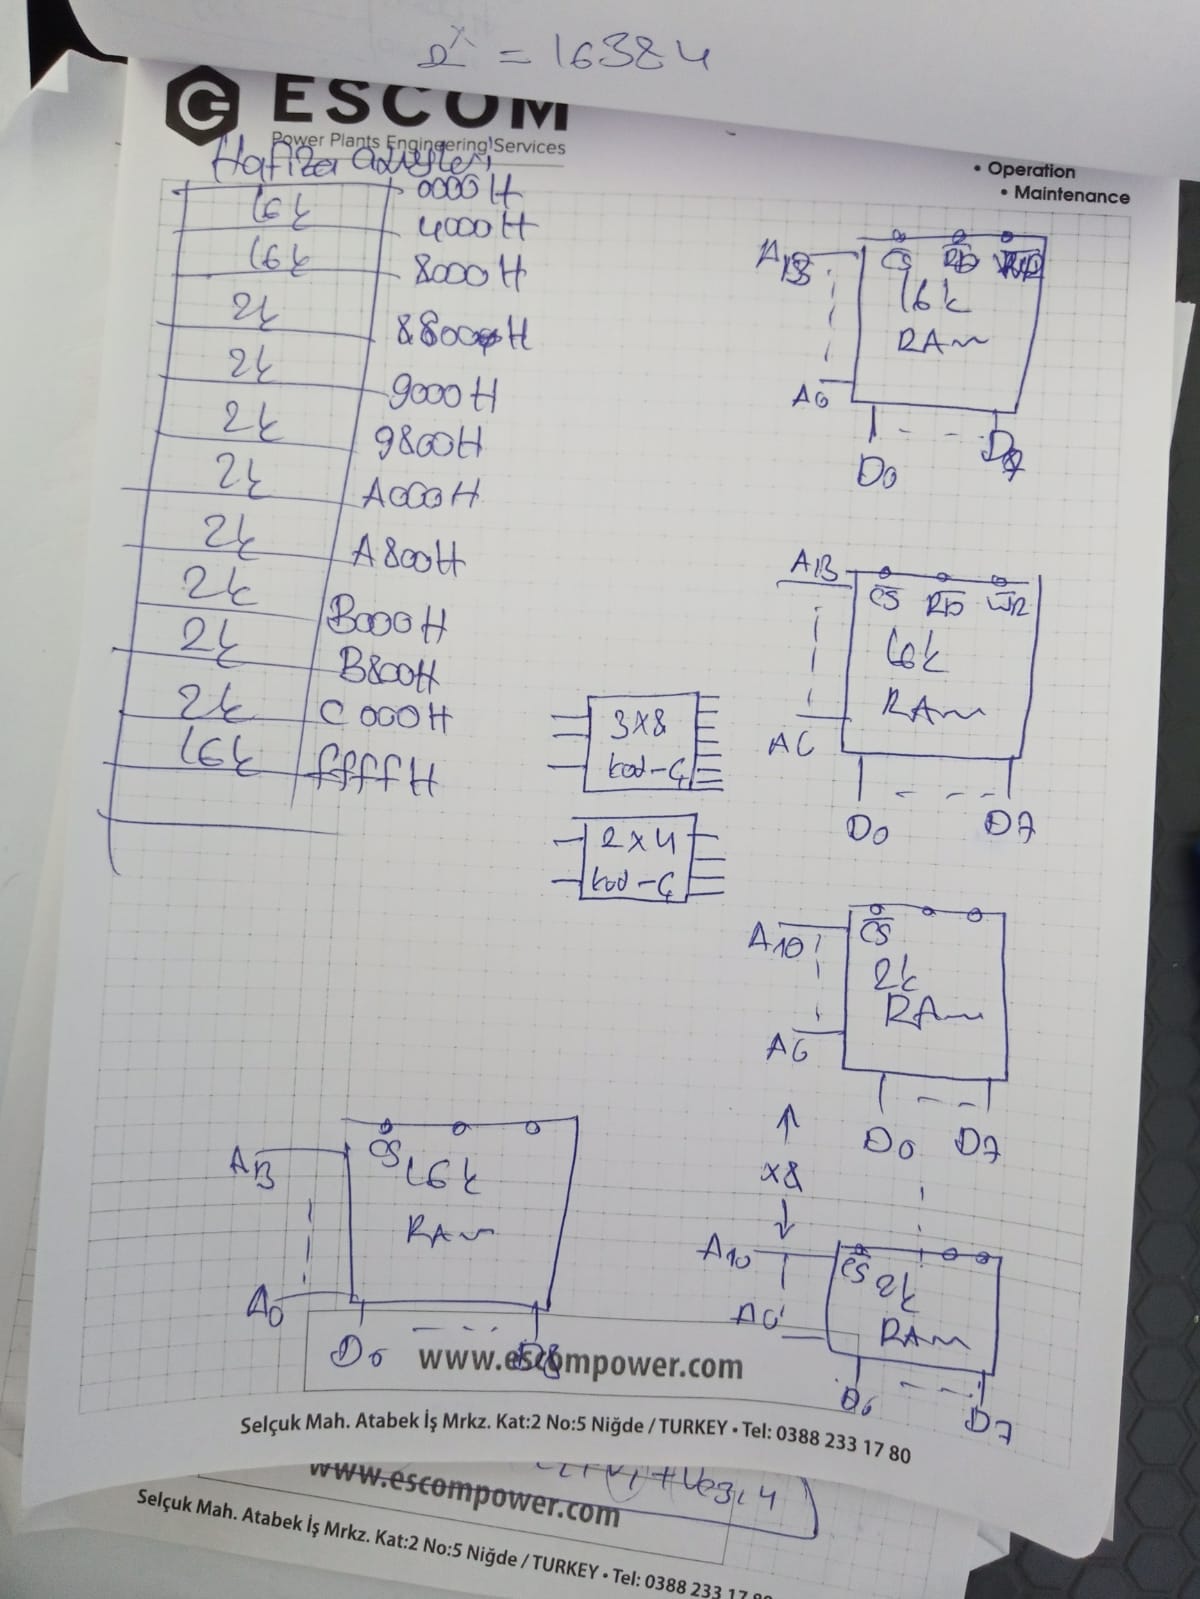 2^x = 16384
ESCOM
Power Plants Engineering Services
• Operation
• Maintenance
Hafıza
0000H
16k
4000H
16k
8000H
2k
8800H
2k
9000H
2k
9800H
2k
A000H
2k
A800H
2k
B000H
2k
B800H
2k
C000H
16k
ffffH
A13
CS RD WR
16k
RAM
A0
D0
D7
A13
CS RD WR
16k
RAM
A0
D0 D7
3x8
kod-Ç
2x4
kod-Ç
A10
CS
2k
RAM
A0
D0 D7
x8
A10
CS
2k
RAM
A0
D0 D7
A13
CS
16k
RAM
A0
D0
www.escompower.com
Selçuk Mah. Atabek İş Mrkz. Kat:2 No:5 Niğde / TURKEY • Tel: 0388 233 17 80
www.escompower.com
Selçuk Mah. Atabek İş Mrkz. Kat:2 No:5 Niğde / TURKEY • Tel: 0388 233 17 80